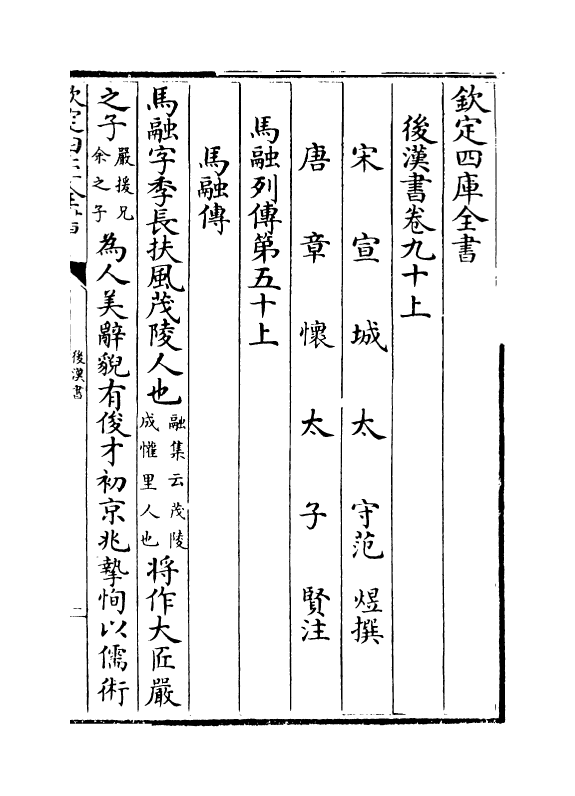 欽定四庫全書
後漢書卷九十上
宋宣城太守范煜撰
唐章懷太子賢注
馬融列傳第五十上
馬融傳
馬融字季長扶風茂陵人也融集云茂陵成懽里人也将作大匠嚴
之子嚴援兄余之子為人美辭貌有俊才初京兆摯恂以儒術
欽定四庫全書
後漢書